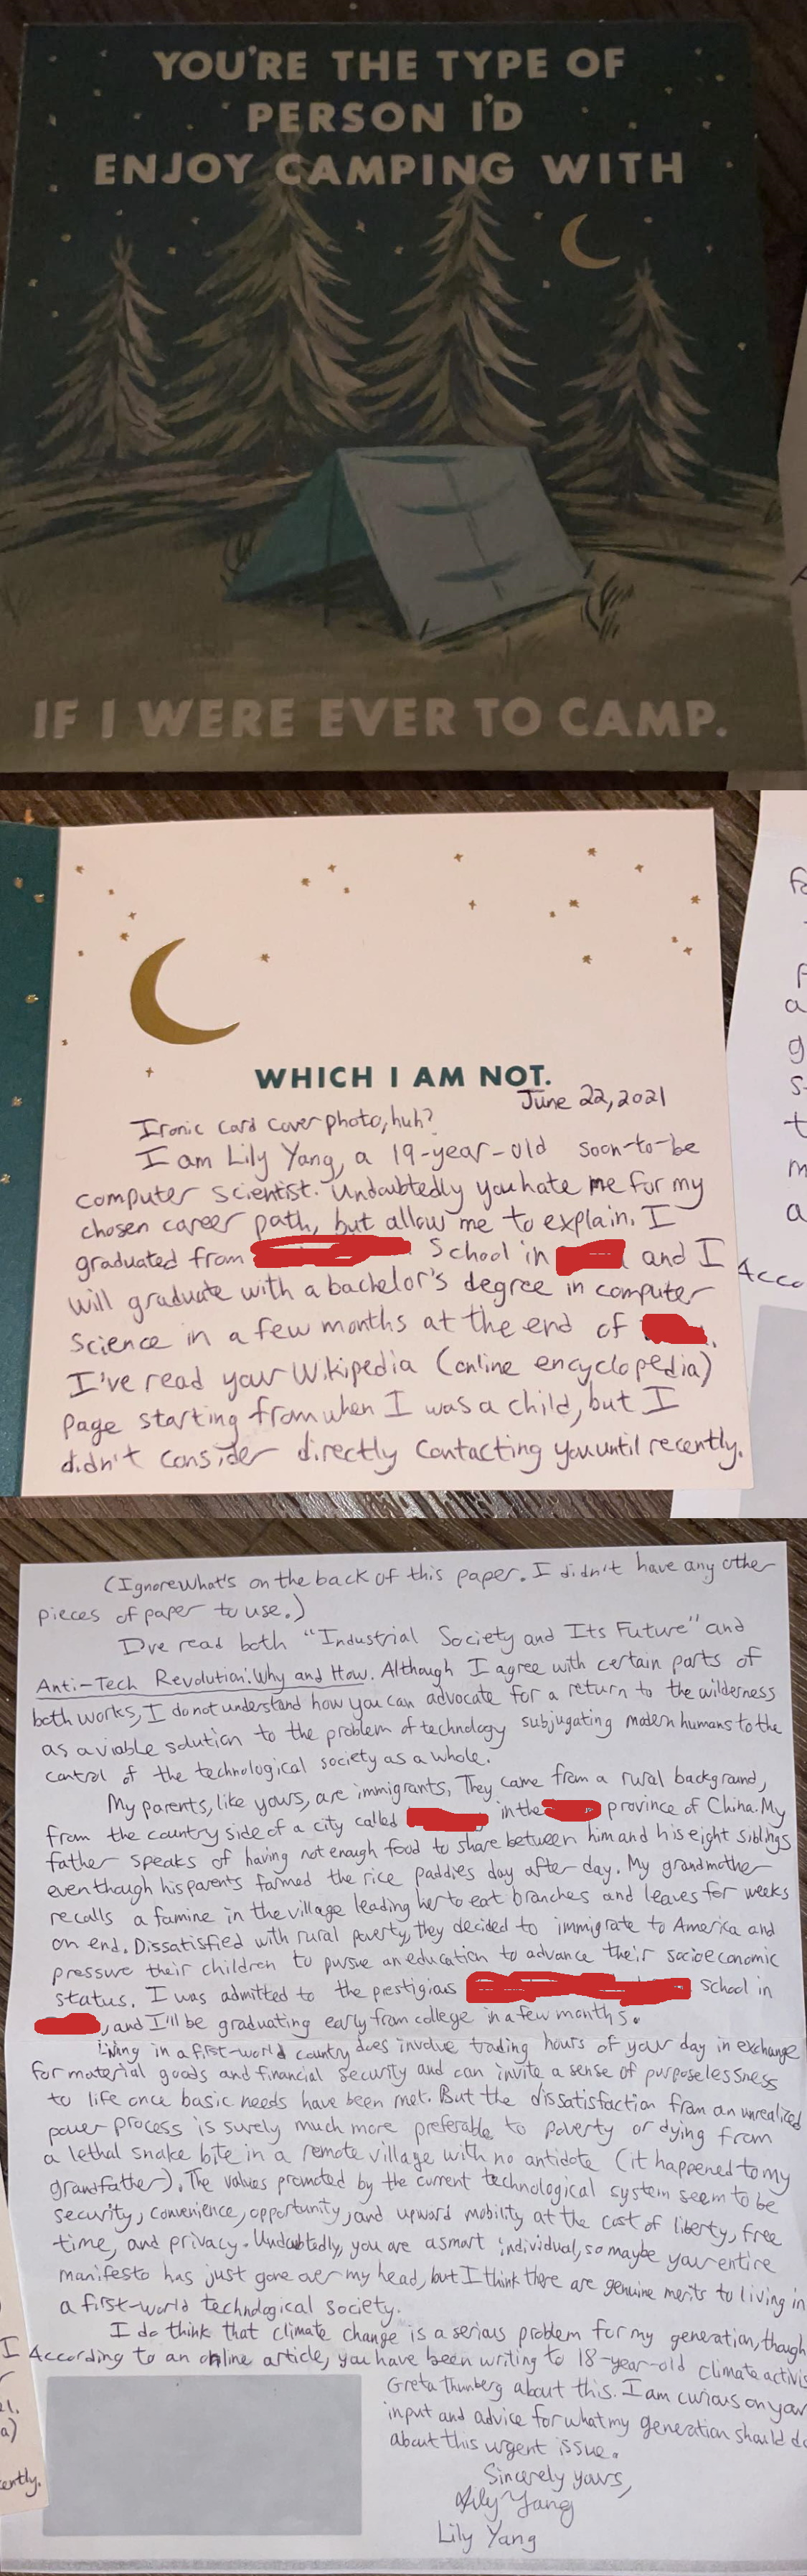 YOU'RE THE TYPE OF
PERSON I'D
ENJOY CAMPING WITH
IF I WERE EVER TO CAMP.
WHICH I AM NOT.
June 22, 2021
Ironic card cover photo, huh?
I am Lily Yang, a 19-year-old soon-to-be
computer scientist. Undoubtedly you hate me for my
chosen career path, but allow me to explain. I
graduated from School in and I
will graduate with a bachelor's degree in computer
science in a few months at the end of .
I've read your Wikipedia (online encyclopedia)
page starting from when I was a child, but I
didn't consider directly contacting you until recently.
(Ignore what's on the back of this paper. I didn't have any other
pieces of paper to use.)
I've read both "Industrial Society and Its Future" and
Anti-Tech Revolution: Why and How. Although I agree with certain parts of
both works, I do not understand how you can advocate for a return to the wilderness
as a viable solution to the problem of technology subjugating modern humans to the
control of the technological society as a whole.
My parents, like yours, are immigrants. They came from a rural background,
from the country side of a city called in the province of China. My
father speaks of having not enough food to share between him and his eight siblings
even though his parents farmed the rice paddies day after day. My grandmother
recalls a famine in the village leading her to eat branches and leaves for weeks
on end. Dissatisfied with rural poverty, they decided to immigrate to America and
pressure their children to pursue an education to advance their socioeconomic
status. I was admitted to the prestigious School in
, and I'll be graduating early from college in a few months.
Living in a first-world country does involve trading hours of your day in exchange
for material goods and financial security and can invite a sense of purposelessness
to life once basic needs have been met. But the dissatisfaction from an unrealized
power process is surely much more preferable to poverty or dying from
a lethal snake bite in a remote village with no antidote (it happened to my
grandfather). The values promoted by the current technological system seem to be
security, convenience, opportunity, and upward mobility at the cost of liberty, free
time, and privacy. Undoubtedly, you are a smart individual, so maybe your entire
manifesto has just gone over my head, but I think there are genuine merits to living in
a first-world technological society.
I do think that climate change is a serious problem for my generation, though
According to an online article, you have been writing to 18-year-old climate activis
Greta Thunberg about this. I am curious on your
input and advice for what my generation should do
about this urgent issue.
Sincerely yours,
Lily Yang
Lily Yang